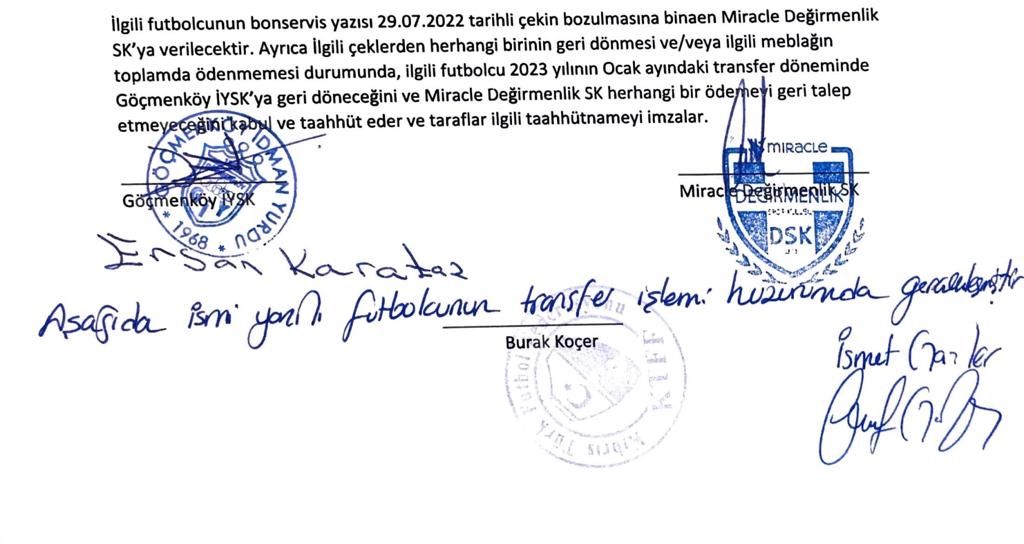 İlgili futbolcunun bonservis yazısı 29.07.2022 tarihli çekin bozulmasına binaen Miracle Değirmenlik
SK'ya verilecektir. Ayrıca İlgili çeklerden herhangi birinin geri dönmesi ve/veya ilgili meblağın
toplamda ödenmemesi durumunda, ilgili futbolcu 2023 yılının Ocak ayındaki transfer döneminde
Göçmenköy İYSK'ya geri döneceğini ve Miracle Değirmenlik SK herhangi bir ödemeyi geri talep
etmeyeceğini kabul ve taahhüt eder ve taraflar ilgili taahhütnameyi imzalar.
GÖÇMENKÖY İDMAN YURDU
* 1968 *
Göçmenköy İYSK
miracle
Miracle Değirmenlik SK
DEĞİRMENLİK
DSK
Ersan Karataş
Aşağıda ismi yazılı futbolcunun transfer işlemi huzurumda gerçekleşmiştir
Burak Koçer
Kıbrıs Türk Futbol Federasyonu
KTFF
İsmet